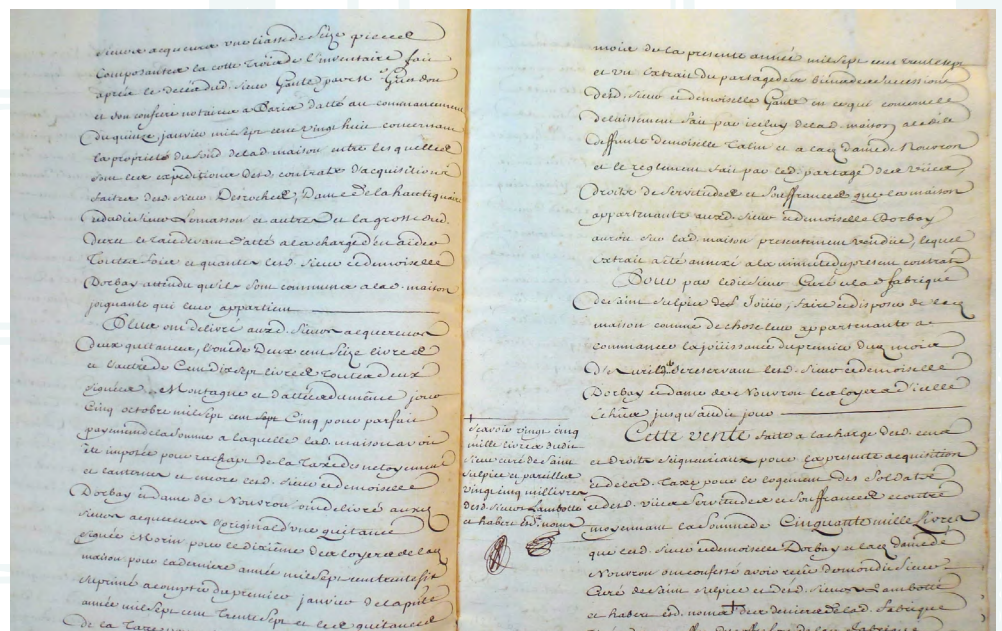 sieurs acquereurs une liasse de seize pieces
composantes la cotte trois de l'inventaire fait
apres le deceds dud. sieur Gaute par Me
et son confrere notaires a Paris datté au commancement
du quinze janvier mil sept cent vingt huit concernant
la propriété du fond de lad. maison, entre lesquelles
sont les expeditions desd. contrats d'acquisitions
faites desd. sieur Desroches, Dame de la
sieur Lomasson et autres et la grosse dud.
a la charge d'en aider
toutes fois et quantes lesd. sieur et demoiselle
Dorbay attendu qu'ils sont communs a la d. maison
joignante qui leur appartient
Plus ont delivré auxd. sieurs acquereurs
deux quitances, l'une de deux cent seize livres
et l'autre de cent dix sept livres toutes deux
signées Montague et dattées du meme jour
cinq octobre mil sept cent sept cinq pour parfait
payement de la somme a laquelle lad. maison avoit
été imposée pour rachapt de la taxe des netoyement
et lanternes et encore lesd. sieur et demoiselle
Dorbay et dame de Nouvron ont delivré auxd.
sieurs acquereurs l'original d'une quitance
signée Morin pour le dixiéme des loyers de lad.
maison pour la derniere année mil sept cent trente six
suprimé a compter du premier janvier de la
année mil sept cent trente sept et les quitances
de la Taxe
mois de la presente année mil sept cent trente sept
et un extrait du partage des biens des successions
desd. sieur et demoiselle Gaute en ce qui concerne le
delaissement fait par iceluy de lad. maison a lad.
deffunte demoiselle Tatin et a lad. dame de Nouvron
et le reglement fait par led. partage des vües,
droits de servitudes et souffrances que la maison
appartenante auxd. sieur et demoiselle Dorbay
auroit sur lad. maison presentement vendüe, lequel
extrait a été annexé a la minutte du present contrat
Pour par ledit sieur Curé et lad. fabrique
de saint Sulpice desd. joüir, faire et disposer de lad.
maison comme de chose leur appartenante a
commancer la joüissance du premier du mois
d'Avril se reservant lesd. sieur et demoiselle
Dorbay et dame de Nouvron les loyers d'icelle
echus jusqu'audit jour
Cette vente faite a la charge desd. cens
et droits seigneuriaux pour la presente acquisition
et de lad. Taxe pour le logement des soldats
et desd. vües servitudes et souffrances et outre
moyennant la somme de Cinquante mille livres
que lesd. sieur et demoiselle Dorbay et lad. dame de
Nouvron ont confessé avoir reçu dud. sieur
Curé de saint Sulpice et desd. sieurs Lambotte
et habert esd. noms + des deniers de lad. fabrique
+
sçavoir vingt cinq
mille livres dudit
sieur curé de saint
Sulpice et pareilles
vingt cinq mil livres
desd. sieurs Lambotte
et habert esd. noms